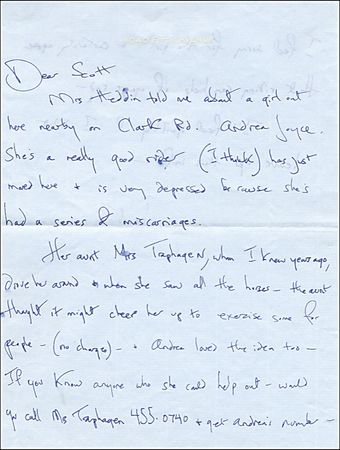 Dear Scott
Mrs Heddin told me about a girl out
here nearby on Clark Rd. Andrea Joyce.
She's a really good rider (I think) has just
moved here + is very depressed because she's
had a series of miscarriages.
Her aunt Mrs Traphagen, whom I knew years ago,
drove her around + when she saw all the horses - the aunt
thought it might cheer her up to exercise some for
people - (no charge) - + Andrea loved the idea too -
If you know anyone who she could help out - would
you call Mrs Traphagen 455-0740 + get Andrea's number -